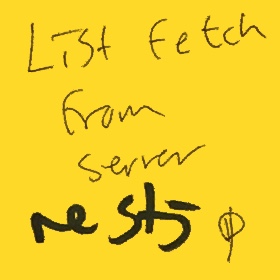 List Fetch
From
server
nests